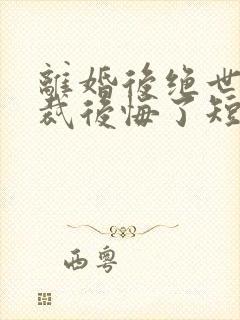 離婚後绝世
裁後悔了短
西粵